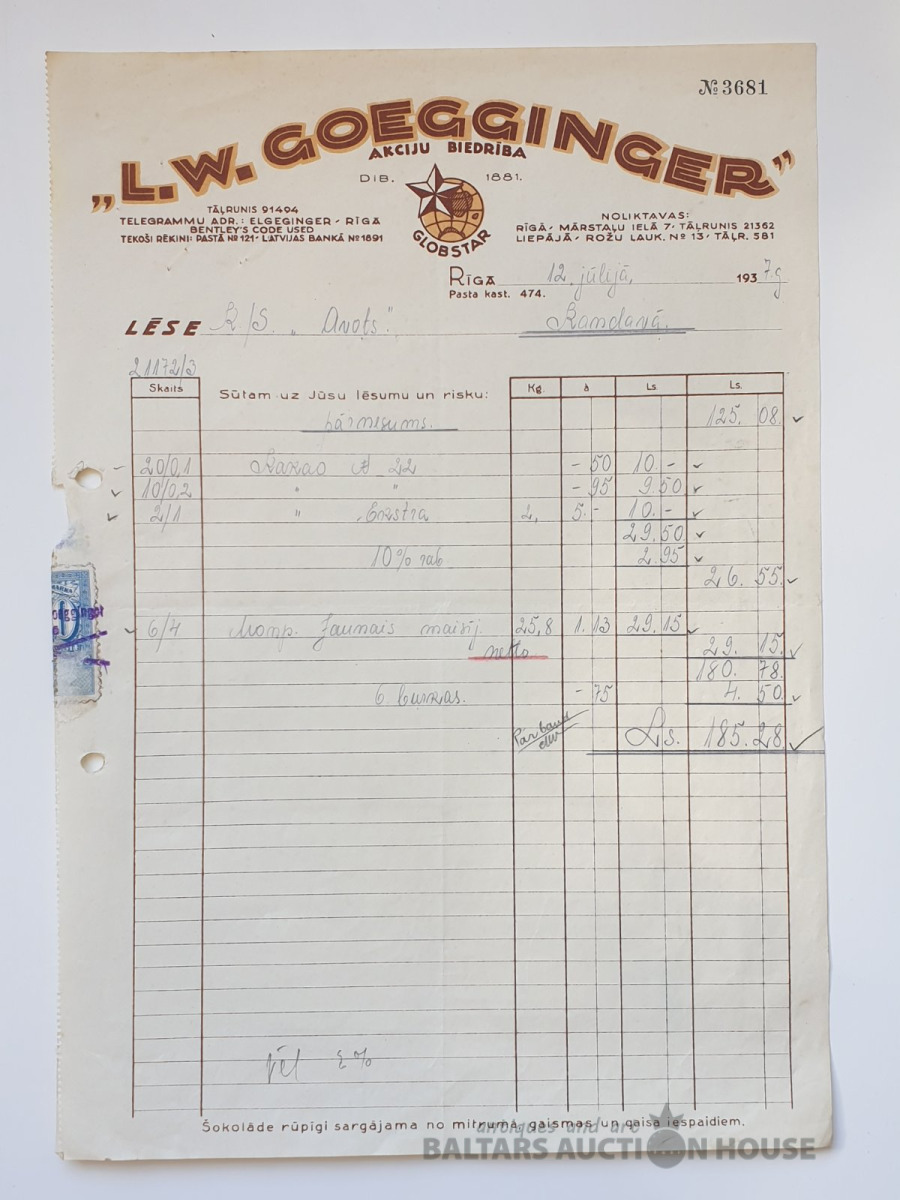 № 3681
„L.W. GOEGGINGER”
AKCIJU BIEDRĪBA
DIB. 1881.
GLOBSTAR
TĀĻRUNIS 91404
TELEGRAMMU ADR.: ELGEGINGER - RĪGA
BENTLEY'S CODE USED
TEKOŠI RĒĶINI: PASTĀ № 121 - LATVIJAS BANKĀ № 1891
NOLIKTAVAS:
RĪGĀ - MĀRSTAĻU IELĀ 7 - TĀĻRUNIS 21362
LIEPĀJĀ - ROŽU LAUK. № 13 - TĀĻR. 581
RĪGĀ 12. jūlijā, 1937.g
Pasta kast. 474.
LĒSE K/S. „Avots". Kandavā.
21172/3
Skaits Sūtam uz Jūsu lēsumu un risku: Kg. à Ls. Ls.
pārnesums. 125. 08.
20/0,1 Kakao A 22 - 50 10. -
10/0,2 " " - 95 9.50
2/1 " Ekstra 2, 5. - 10. -
29.50
10% rab. 2.95
26. 55.
6/4 Monp. Jaunais maisīj. 25,8 1.13 29.15
netto 29. 15.
180. 78.
6 burkas. - 75 4. 50
Ls. 185.28
vēl 2%
Šokolāde rūpīgi sargājama no mitruma, gaismas un gaisa iespaidiem.
antiques and art
BALTARS AUCTION HOUSE